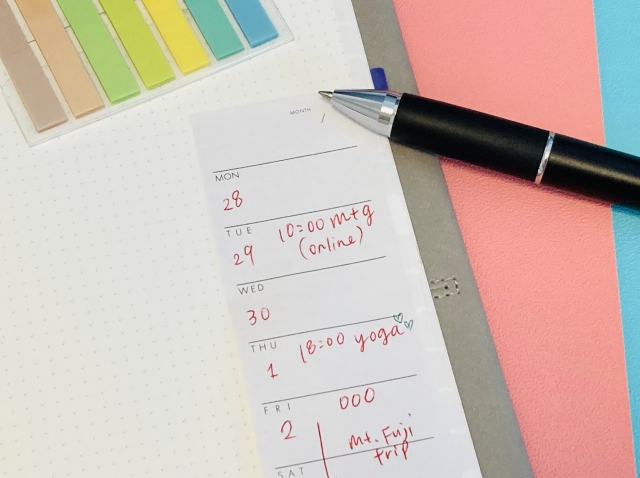 MONTH
/
MON
28
TUE
29 10:00 mtg
(online)
WED
30
THU
1 18:00 yoga
FRI
2 OOO
Mt. Fuji
trip
SAT